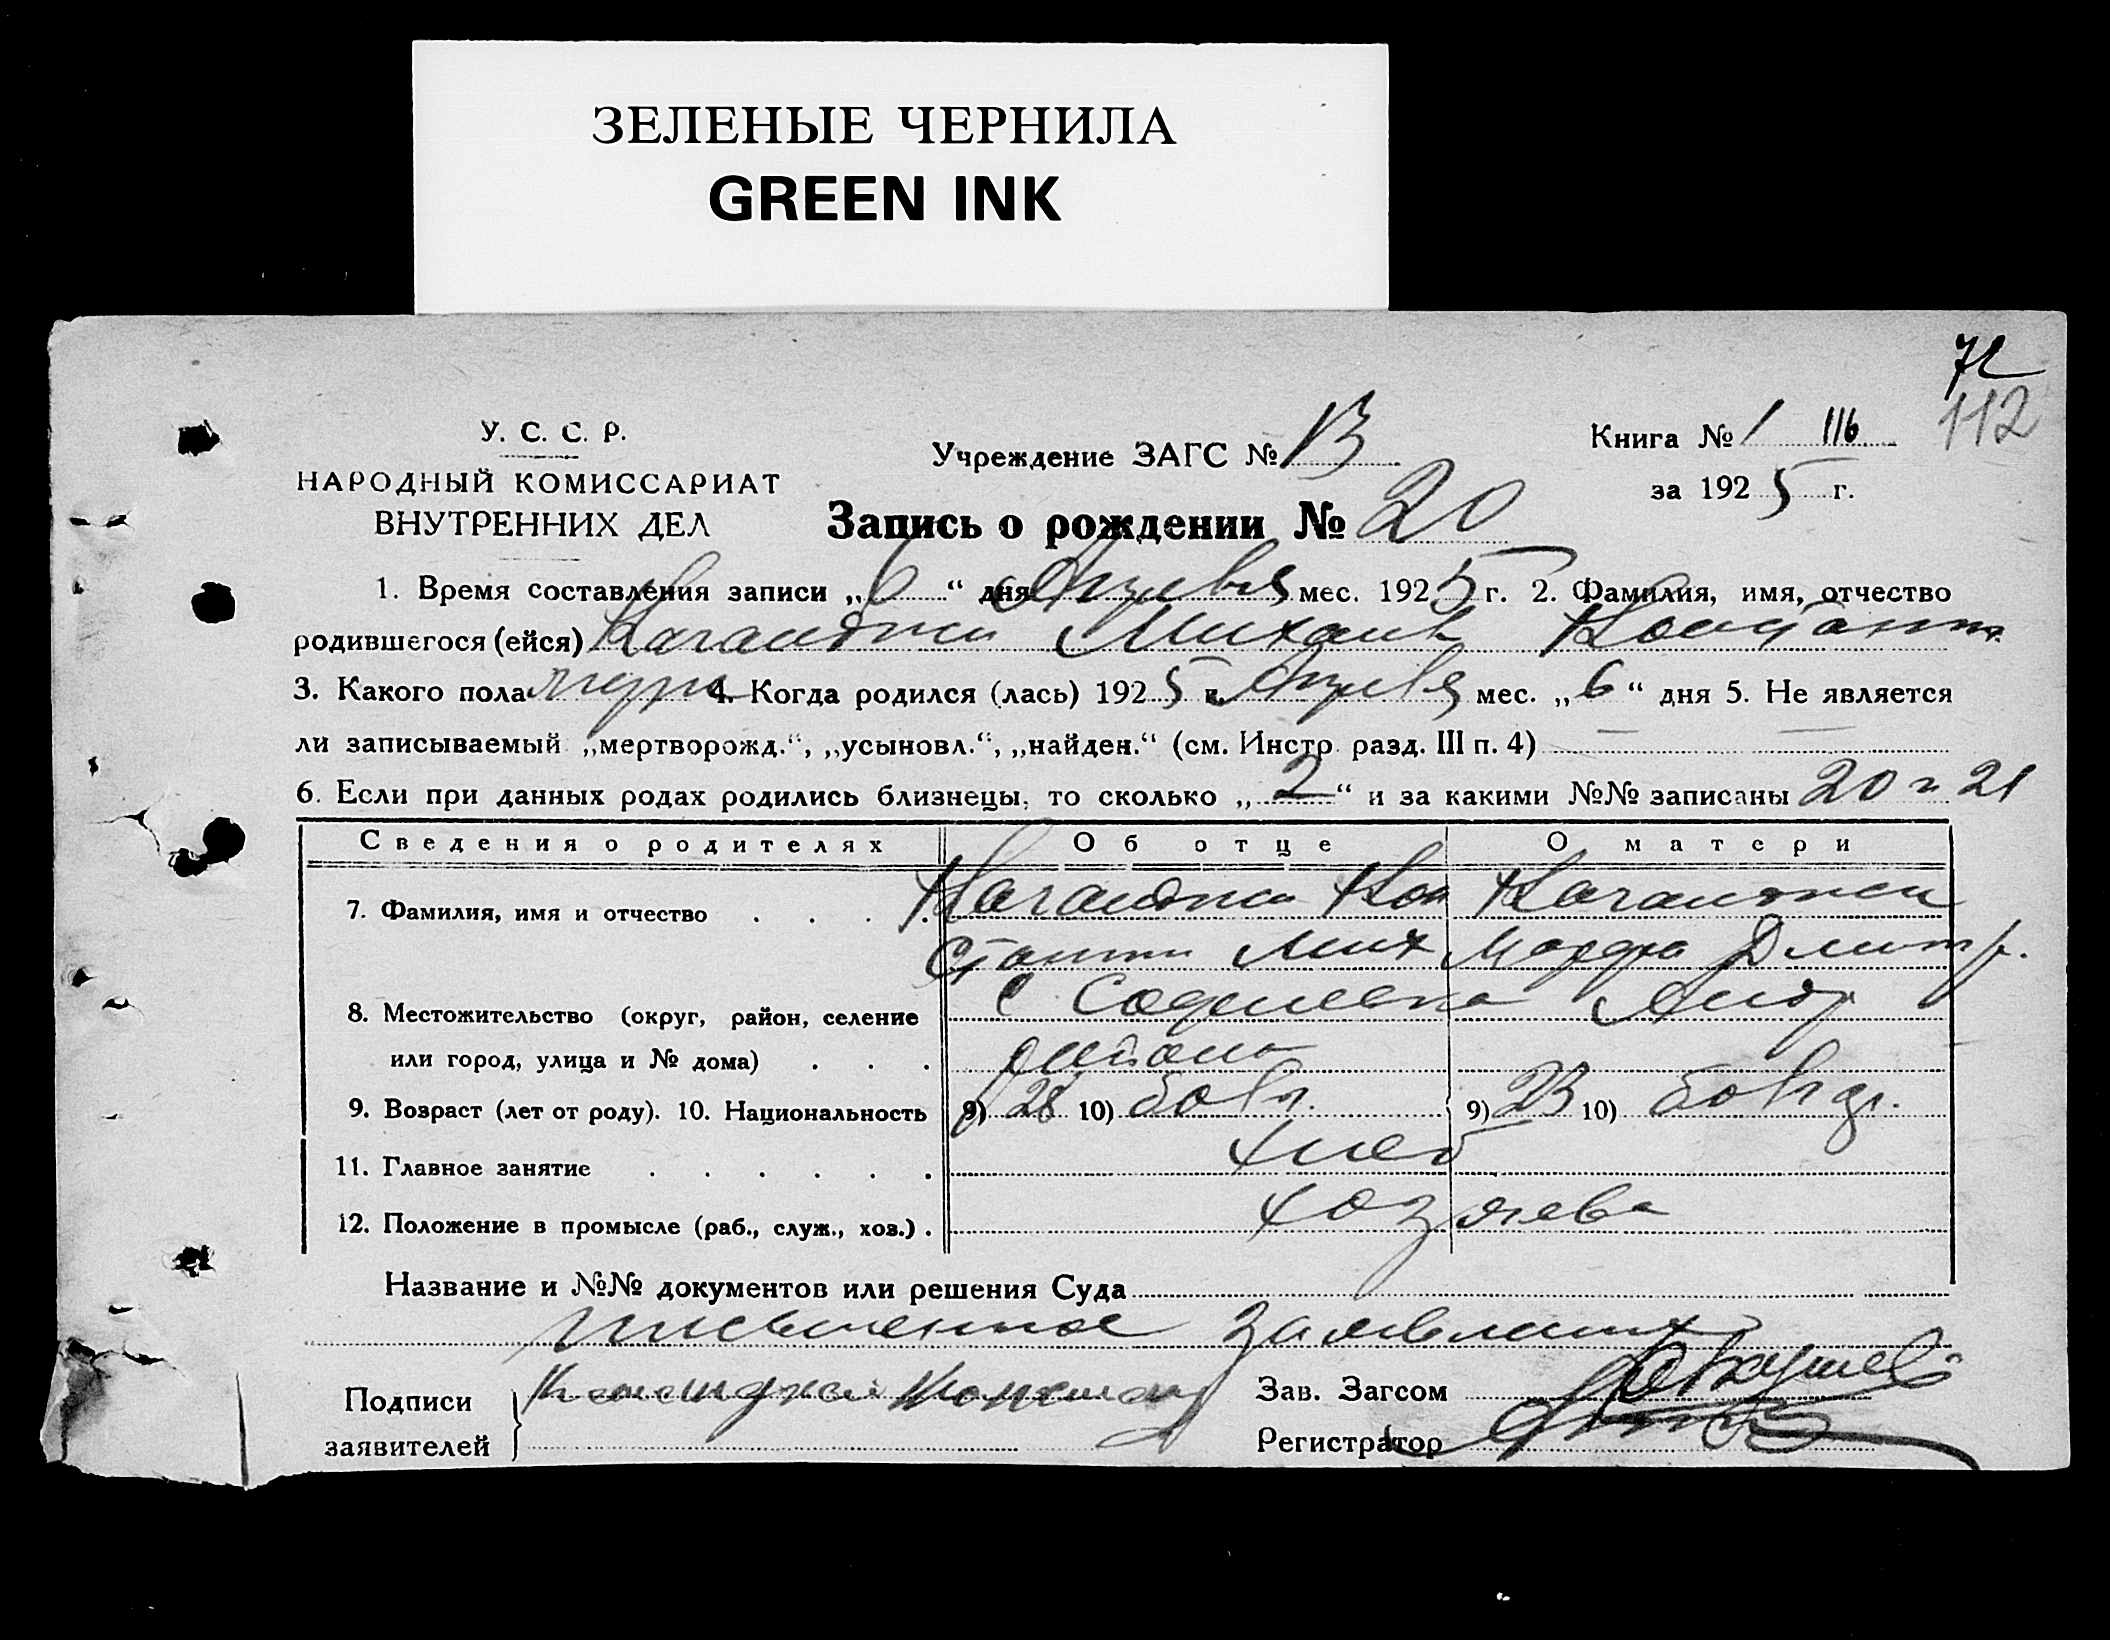 ЗЕЛЕНЫЕ ЧЕРНИЛА
GREEN INK
72
112
У. С. С. Р.
НАРОДНЫЙ КОМИССАРИАТ
ВНУТРЕННИХ ДЕЛ
Учреждение ЗАГС № 13
Книга № 1 116
за 1925 г.
Запись о рождении № 20
1. Время составления записи „6“ дня Января мес. 1925 г. 2. Фамилия, имя, отчество
родившегося (ейся) Михаил Констант.
3. Какого пола мужс 4. Когда родился (лась) 1925 г. Января мес. „6“ дня 5. Не является
ли записываемый „мертворожд.“, „усыновл.“, „найден.“ (см. Инстр. разд. III п. 4) —
6. Если при данных родах родились близнецы, то сколько „2“ и за какими №№ записаны 20 и 21
Сведения о родителях Об отце О матери
7. Фамилия, имя и отчество . . . . Кон
стантин Мих Марфа Дмитр.
8. Местожительство (округ, район, селение с Софиевка
или город, улица и № дома) . . . района
9. Возраст (лет от роду). 10. Национальность 9) 28 10) болг. 9) 23 10) болгар.
11. Главное занятие . . . . . . хлеб
12. Положение в промысле (раб., служ., хоз.) . хозяева
Название и №№ документов или решения Суда
письменное заявление
Подписи
заявителей
Зав. Загсом
Регистратор